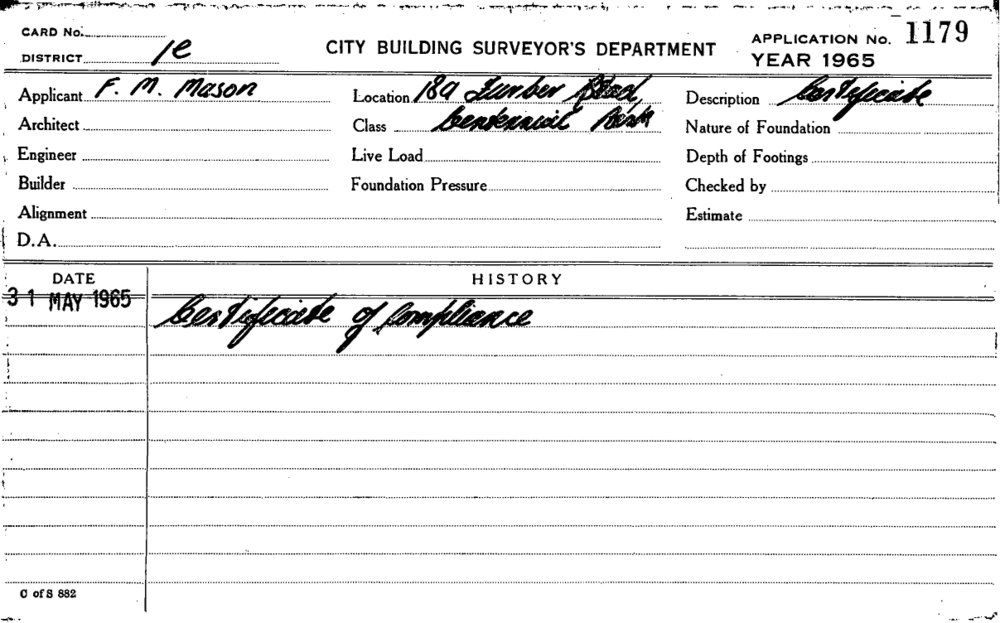 CARD No.
DISTRICT 1e
CITY BUILDING SURVEYOR'S DEPARTMENT
APPLICATION No. 1179
YEAR 1965
Applicant F. M. Mason
Location 189 Road,
Description Certificate
Architect
Class Centennial Park
Nature of Foundation
Engineer
Live Load
Depth of Footings
Builder
Foundation Pressure
Checked by
Alignment
Estimate
D.A.
DATE
HISTORY
31 MAY 1965
Certificate of Compliance
C of S 882